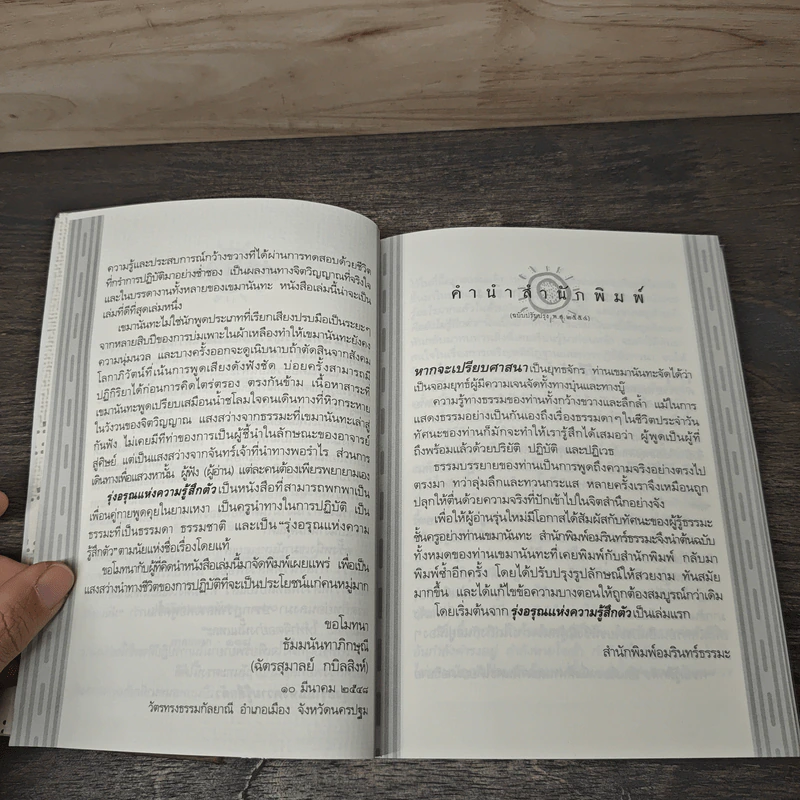 ความรู้และประสบการณ์กว้างขวางที่ได้ผ่านการทดสอบด้วยชีวิต
ที่กรำการปฏิบัติมาอย่างช่ำชอง เป็นผลงานทางจิตวิญญาณที่จริงใจ
และในบรรดางานทั้งหลายของเขมานันทะ หนังสือเล่มนี้น่าจะเป็น
เล่มที่ดีที่สุดเล่มหนึ่ง
เขมานันทะไม่ใช่นักพูดประเภทที่เรียกเสียงปรบมือเป็นระยะๆ
จากหลายสิบปีของการบ่มเพาะในผ้าเหลืองทำให้เขมานันทะยังคง
ความนุ่มนวล และบางครั้งออกจะดูเนิบนาบถ้าตัดสินจากสังคม
โลกาภิวัตน์ที่เน้นการพูดเสียงดังฟังชัด บ่อยครั้งสามารถมี
ปฏิกิริยาได้ก่อนการคิดไตร่ตรอง ตรงกันข้าม เนื้อหาสาระที่
เขมานันทะพูดเปรียบเสมือนน้ำชโลมใจคนเดินทางที่หิวกระหาย
ในวังวนของจิตวิญญาณ แสงสว่างจากธรรมะที่เขมานันทะเล่าสู่
กันฟัง ไม่เคยมีทีท่าของการเป็นผู้ชี้นำในลักษณะของอาจารย์
สู่ศิษย์ แต่เป็นแสงสว่างจากจันทร์เจ้าที่นำทางพอรำไร ส่วนการ
เดินทางเพื่อแสวงหานั้น ผู้ฟัง (ผู้อ่าน) แต่ละคนต้องเพียรพยายามเอง
รุ่งอรุณแห่งความรู้สึกตัวเป็นหนังสือที่สามารถพกพาเป็น
เพื่อนคู่กายพูดคุยในยามเหงา เป็นครูนำทางในการปฏิบัติ เป็น
ธรรมะที่เป็นธรรมดา ธรรมชาติ และเป็น "รุ่งอรุณแห่งความ
รู้สึกตัว" ตามนัยแห่งชื่อเรื่องโดยแท้
ขอโมทนากับผู้ที่คิดนำหนังสือเล่มนี้มาจัดพิมพ์เผยแพร่ เพื่อเป็น
แสงสว่างนำทางชีวิตของการปฏิบัติที่จะเป็นประโยชน์แก่คนหมู่มาก
ขอโมทนา
ธัมมนันทาภิกษุณี
(ฉัตรสุมาลย์ กบิลสิงห์)
๑๐ มีนาคม ๒๕๔๘
วัตรทรงธรรมกัลยาณี อำเภอเมือง จังหวัดนครปฐม
คำนำสำนักพิมพ์
(ฉบับปรับปรุง, พ.ศ. ๒๕๕๔)
หากจะเปรียบศาสนาเป็นยุทธจักร ท่านเขมานันทะจัดได้ว่า
เป็นจอมยุทธ์ผู้มีความเจนจัดทั้งทางบุ๋นและทางบู๊
ความรู้ทางธรรมของท่านทั้งกว้างขวางและลึกล้ำ แม้ในการ
แสดงธรรมอย่างเป็นกันเองถึงเรื่องธรรมดาๆ ในชีวิตประจำวัน
ทัศนะของท่านก็มักจะทำให้เรารู้สึกได้เสมอว่า ผู้พูดเป็นผู้ที่
ถึงพร้อมแล้วด้วยปริยัติ ปฏิบัติ และปฏิเวธ
ธรรมบรรยายของท่านเป็นการพูดถึงความจริงอย่างตรงไป
ตรงมา ทว่าลุ่มลึกและทวนกระแส หลายครั้งเราจึงเหมือนถูก
ปลุกให้ตื่นด้วยความจริงที่ปักเข้าไปในจิตสำนึกอย่างจัง
เพื่อให้ผู้อ่านรุ่นใหม่มีโอกาสได้สัมผัสกับทัศนะของผู้รู้ธรรมะ
ชั้นครูอย่างท่านเขมานันทะ สำนักพิมพ์อมรินทร์ธรรมะจึงนำต้นฉบับ
ทั้งหมดของท่านเขมานันทะที่เคยพิมพ์กับสำนักพิมพ์ กลับมา
พิมพ์ซ้ำอีกครั้ง โดยได้ปรับปรุงรูปลักษณ์ให้สวยงาม ทันสมัย
มากขึ้น และได้แก้ไขข้อความบางตอนให้ถูกต้องสมบูรณ์กว่าเดิม
โดยเริ่มต้นจาก รุ่งอรุณแห่งความรู้สึกตัว เป็นเล่มแรก
สำนักพิมพ์อมรินทร์ธรรมะ